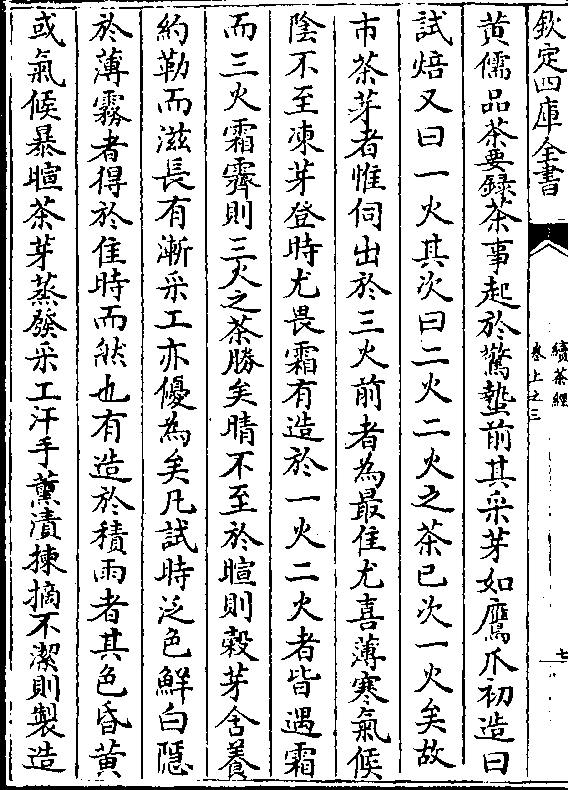 欽定四庫全書
續茶經
卷上之三
七
黄儒品茶要録茶事起於驚蟄前其采芽如鷹爪初造曰
試焙又曰一火其次曰二火二火之茶已次一火矣故
市茶芽者惟伺出於三火前者為最佳尤喜薄寒氣候
陰不至凍芽登時尤畏霜有造於一火二火者皆遇霜
而三火霜霽則三火之茶勝矣晴不至於暄則榖芽含養
約勒而滋長有漸采工亦優為矣凡試時泛色鮮白隠
於薄霧者得於佳時而然也有造於積雨者其色昏黄
或氣候暴暄茶芽蒸發采工汗手薫漬揀摘不潔則製造